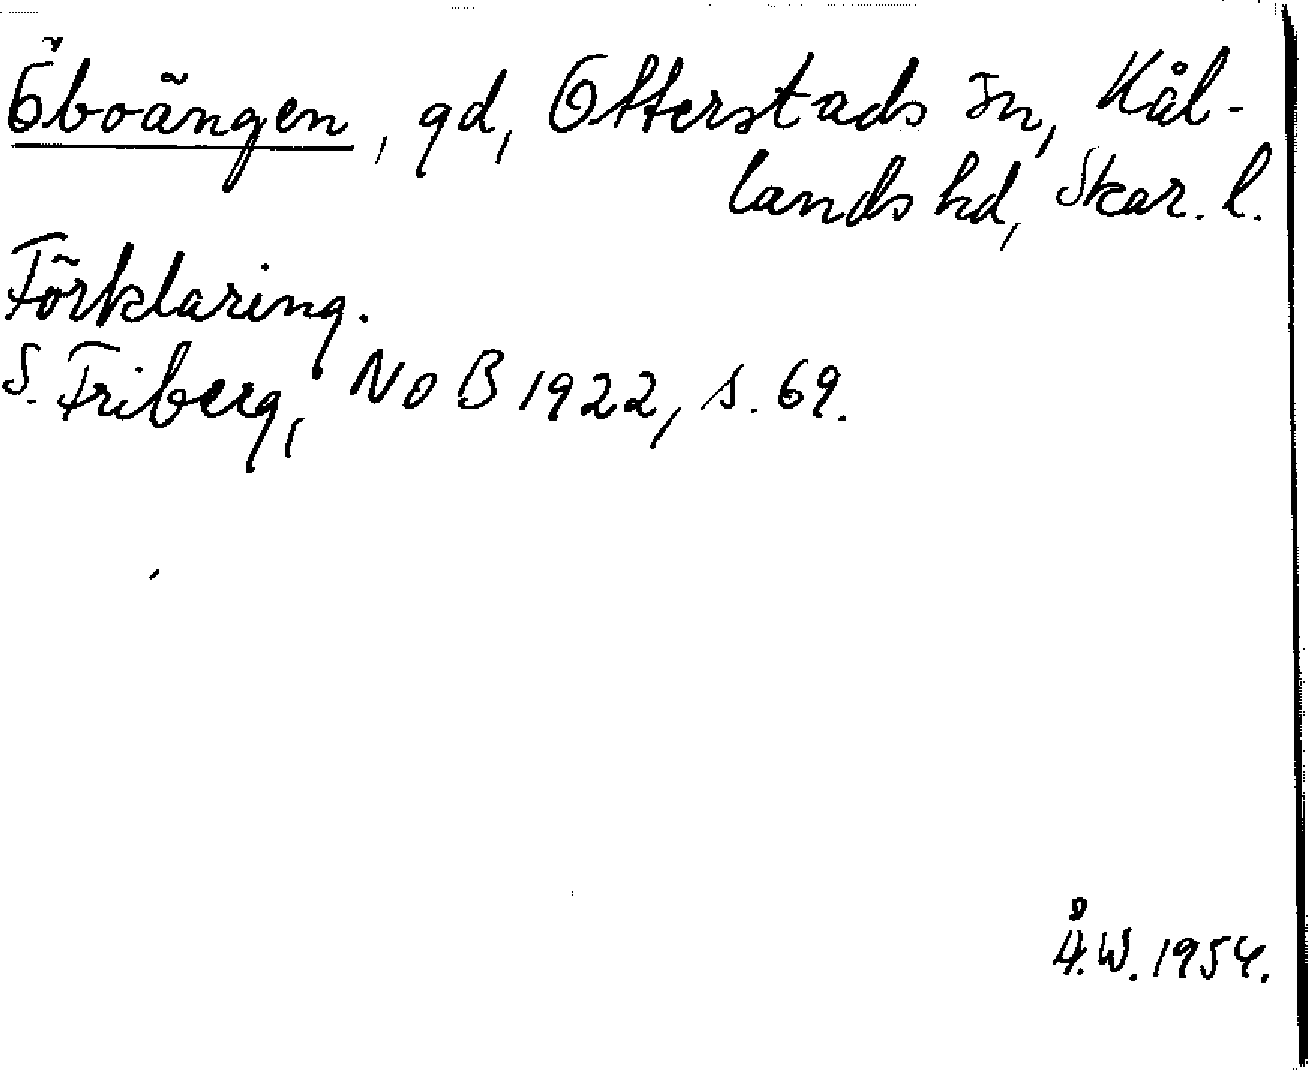 Öboängen, gd, Otterstads sn, Kål-
lands hd, Skar. l.
Förklaring.
S. Friberg, NoB 1922, s. 69.
Å.W. 1954.